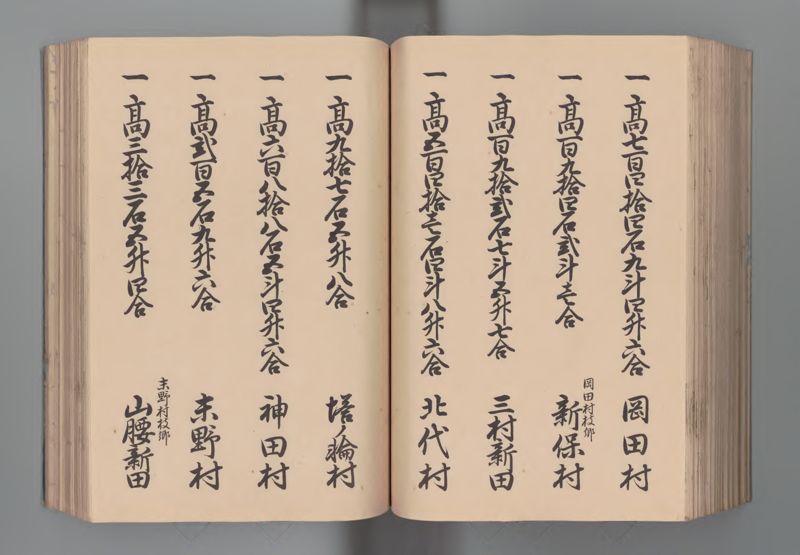 一高七百四拾四石九斗四升六合 岡田村
一高百九拾四石弐斗壱合 岡田村枝郷 新保村
一高百九拾弐石七斗五升七合 三村新田
一高五百四拾壱石四斗八升六合 北代村
一高九拾七石五升八合 塔ノ輪村
一高六百八拾八石五斗四升六合 神田村
一高弐百五石九升六合 末野村
一高三拾三石五升四合 末野村枝郷 山腰新田